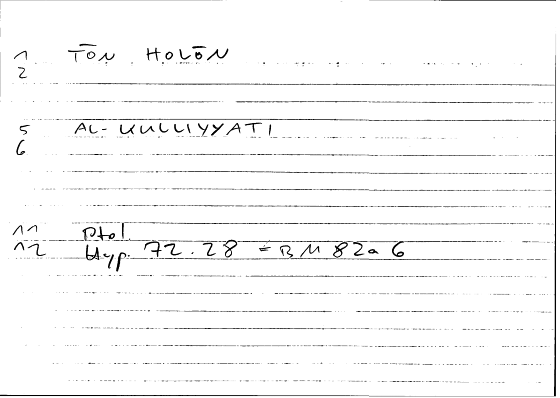 1 TŌN HOLŌN
2
5 AL-KULLIYYATI
6
11 Ptol
12 Hyp. 72.28 = BM 82a 6